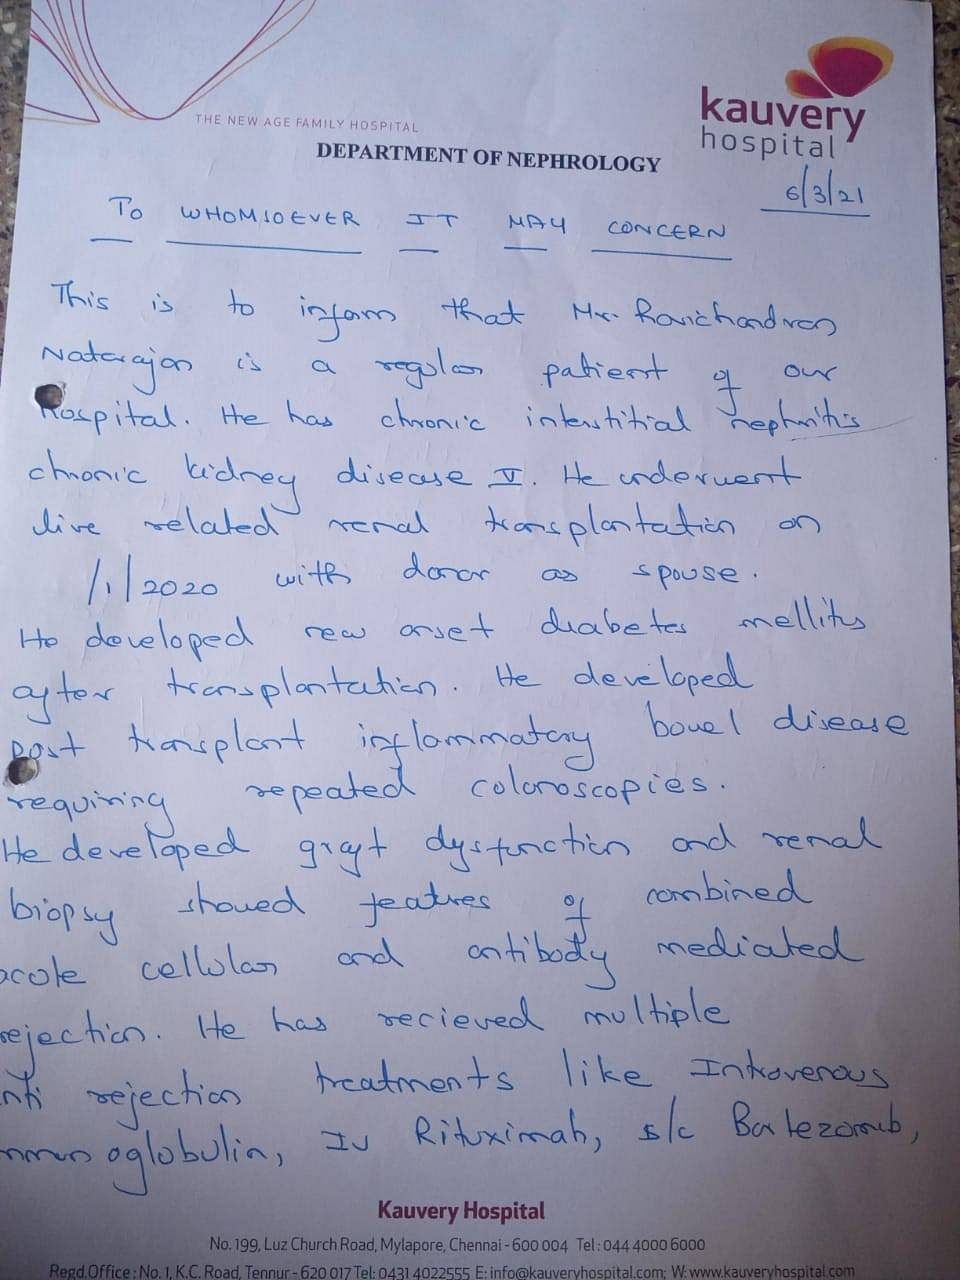 THE NEW AGE FAMILY HOSPITAL
kauvery
hospital
DEPARTMENT OF NEPHROLOGY
6/3/21
TO WHOMSOEVER IT MAY CONCERN
This is to inform that Mr. Ravichandran
Natarajan is a regular patient of our
hospital. He has chronic interstitial nephritis
chronic kidney disease V. He underwent
live related renal transplantation on
/1/2020 with donor as spouse.
He developed new onset diabetes mellitus
after transplantation. He developed
post transplant inflammatory bowel disease
requiring repeated colonoscopies.
He developed graft dysfunction and renal
biopsy showed features of combined
acute cellular and antibody mediated
rejection. He has recieved multiple
nti rejection treatments like Intravenous
mmunoglobulin, IV Rituximab, s/c Bortezomib,
Kauvery Hospital
No. 199, Luz Church Road, Mylapore, Chennai - 600 004 Tel : 044 4000 6000
Regd.Office : No. 1, K.C. Road, Tennur - 620 017 Tel: 0431 4022555 E: info@kauveryhospital.com; W: www.kauveryhospital.com